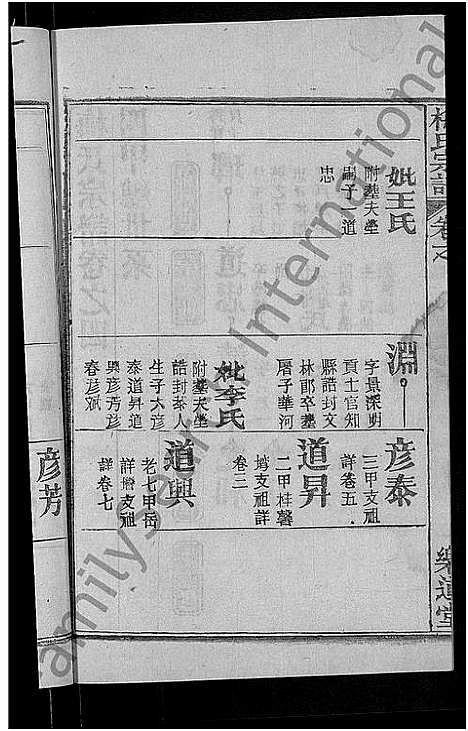 氏宗譜
卷之
樂道堂
妣王氏
附塟夫塋
子一道
忠
淵
字景深明
貢士官知
縣誥封文
林郎卒塟
厝子華河
妣李氏
附塟夫塋
誥封孺人
生子六彦
泰道昇道
興彦芳彦
春彦斌
彦泰
三甲支祖
詳卷五
道昇
二甲桂馨
塆支祖詳
卷三
道興
老七甲岳
詳塆支祖
詳卷七
彦芳
amily
International